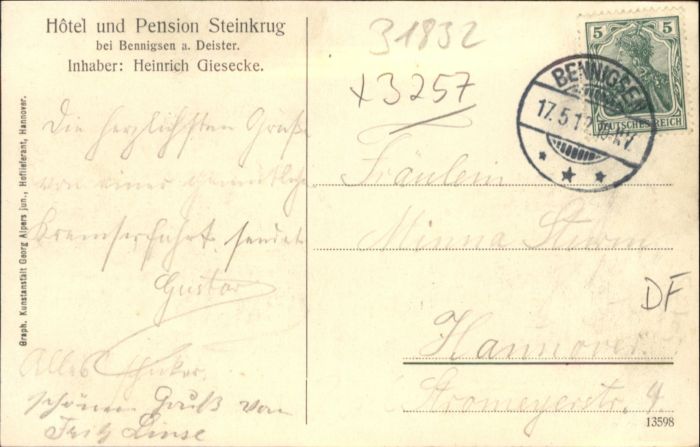 Hôtel und Pension Steinkrug
bei Bennigsen a. Deister.
Inhaber: Heinrich Giesecke.
Graph. Kunstanstalt Georg Alpers jun., Hoflieferant, Hannover.
Die herzlichsten Grüße
von einer gemütlichen
Kremserfahrt sendet
Gustav
Alles
schönen Gruß von
Fritz Linse
31832
x 3257
5 5
BENNIGSEN
17.5.1
DEUTSCHES REICH
Fräulein
Minna Sturm
Hannover.
Stromeyerstr. 9
DF
13598